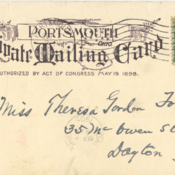 PORTSMOUTH
OHIO
Private Mailing Card
AUTHORIZED BY ACT OF CONGRESS MAY 19, 1898.
Miss Theresa Gordon
35 Mc Owen St
Dayton